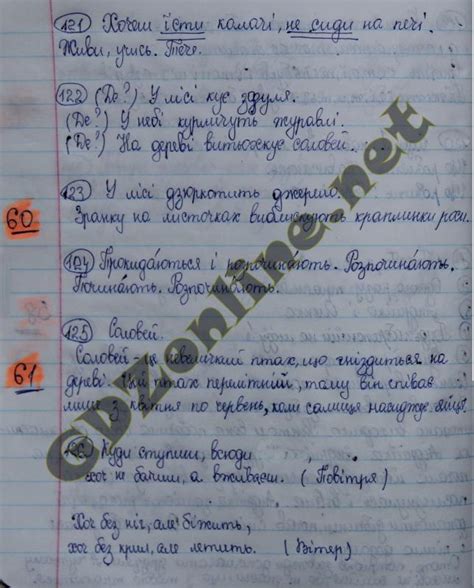 121 Хочеш їсти калачі, не сиди на печі.
Живи, учись. Тече.
122 (Де?) У лісі кує зозуля.
(Де?) У небі курличуть журавлі.
(Де?) На дереві витьохкує соловей.
60
123 У лісі дзюркотить джерело.
Зранку на листочках виблискують краплинки роси.
124 Прокидаються і розпочинають. Розпочинають.
Починають. Розпочинають.
61
125 Соловей.
Соловей - це невеличкий птах, що гніздиться на
дереві. Цей птах перелітний, тому він співає
лише з квітня по червень, коли самиця насиджує яйця.
126 Куди ступиш, всюди
хоч не бачиш, а вживаєш. (Повітря)
Хоч без ніг, але біжить,
хоч без крил, але летить. (Вітер)
GDZonline.net